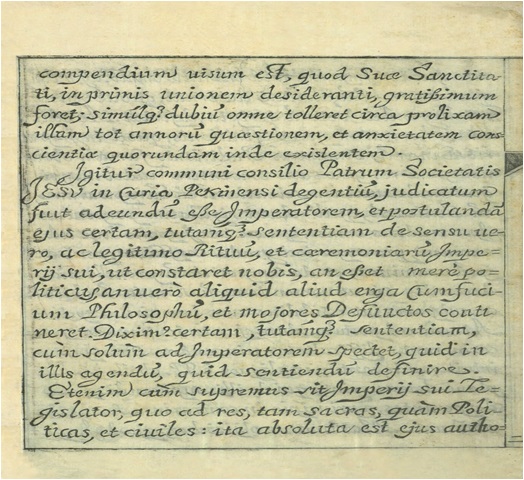 compendium visum est, quod Suæ Sanctita-
ti, in primis unionem desideranti, gratißimum
foret; simulq; dubiū omne tolleret circa prolixam
illam tot annorū quæstionem, et anxietatem cons-
cientiæ quorundam inde existentem.
Igitur communi consilio Patrum Societatis
JESV in Curia Pekinensi degentiū, judicatum
fuit adeundū eße Imperatorem, et postulandā
ejus certam, tutamq; sententiam de sensu ve-
ro, ac legitimo Rituū, et cæremoniarū Impe=
rij sui, ut constaret nobis, an eßet merè po=
liticus, an verò aliquid aliud erga Cumfuci-
um Philosophū, et majores Defūctos conti
neret. Dixim9 certam, tutamq; sententiam,
cùm solùm ad Imperatorem spectet, quid in
illis agendū, quid sentiendū definire.
Etenim cùm supremus sit Imperij sui Le=
gislator, quo ad res, tam sacras, quàm Poli
ticas, et civiles: ita absoluta est ejus autho-